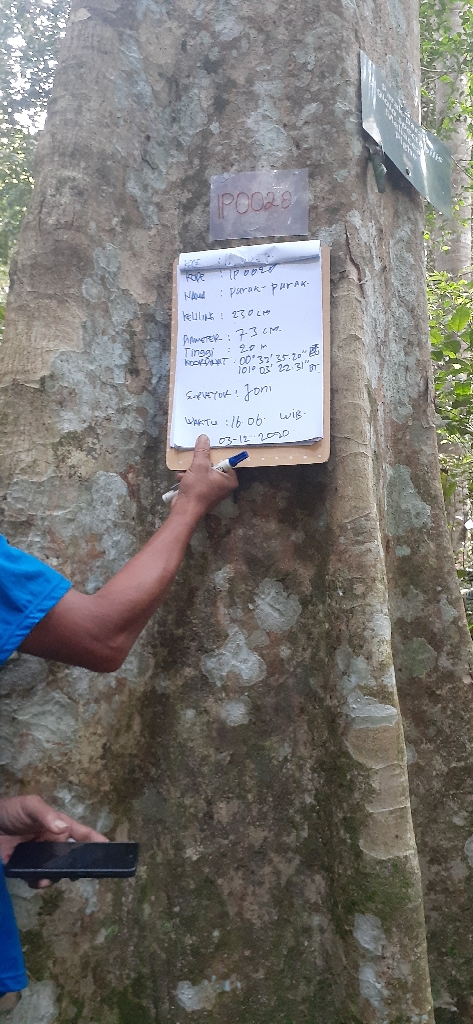 IP0028
KODE : IP0028
NAMA : PURAK-PURAK.
KELILING : 230 cm
DIAMETER : 73 cm.
Tinggi : 20 m
KOORDINAT : 00° 32' 35.20"
101° 03' 22.31" BT.
SURVEYOR : Joni
WAKTU : 16.06. WIB.
03-12-2020